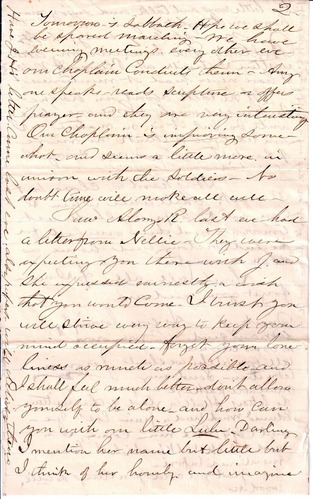 2
Tomorrow is Sabbath. Hope we shall
be spared marching - We have
evening meetings every other eve
our Chaplain Conducts them - Any
one speaks - reads Scripture or offers
prayer - and they are very interesting
Our Chaplain is improving some-
what - and seems a little more in
unison with the Soldiers - No
doubt time will make all well -
Saw Alomy R last eve had
a letter from Nellie - They were
expecting you there with J. and
She expressed earnestly a wish
that you would Come - I trust you
will strive every way to keep your
mind occupied - forget your lone
liness as much as possible and
I shall feel much better - don't allow
yourself to be alone, and how can
you with our little Lulu - Darling
I mention her name but little but
I think of her hourly and imagine